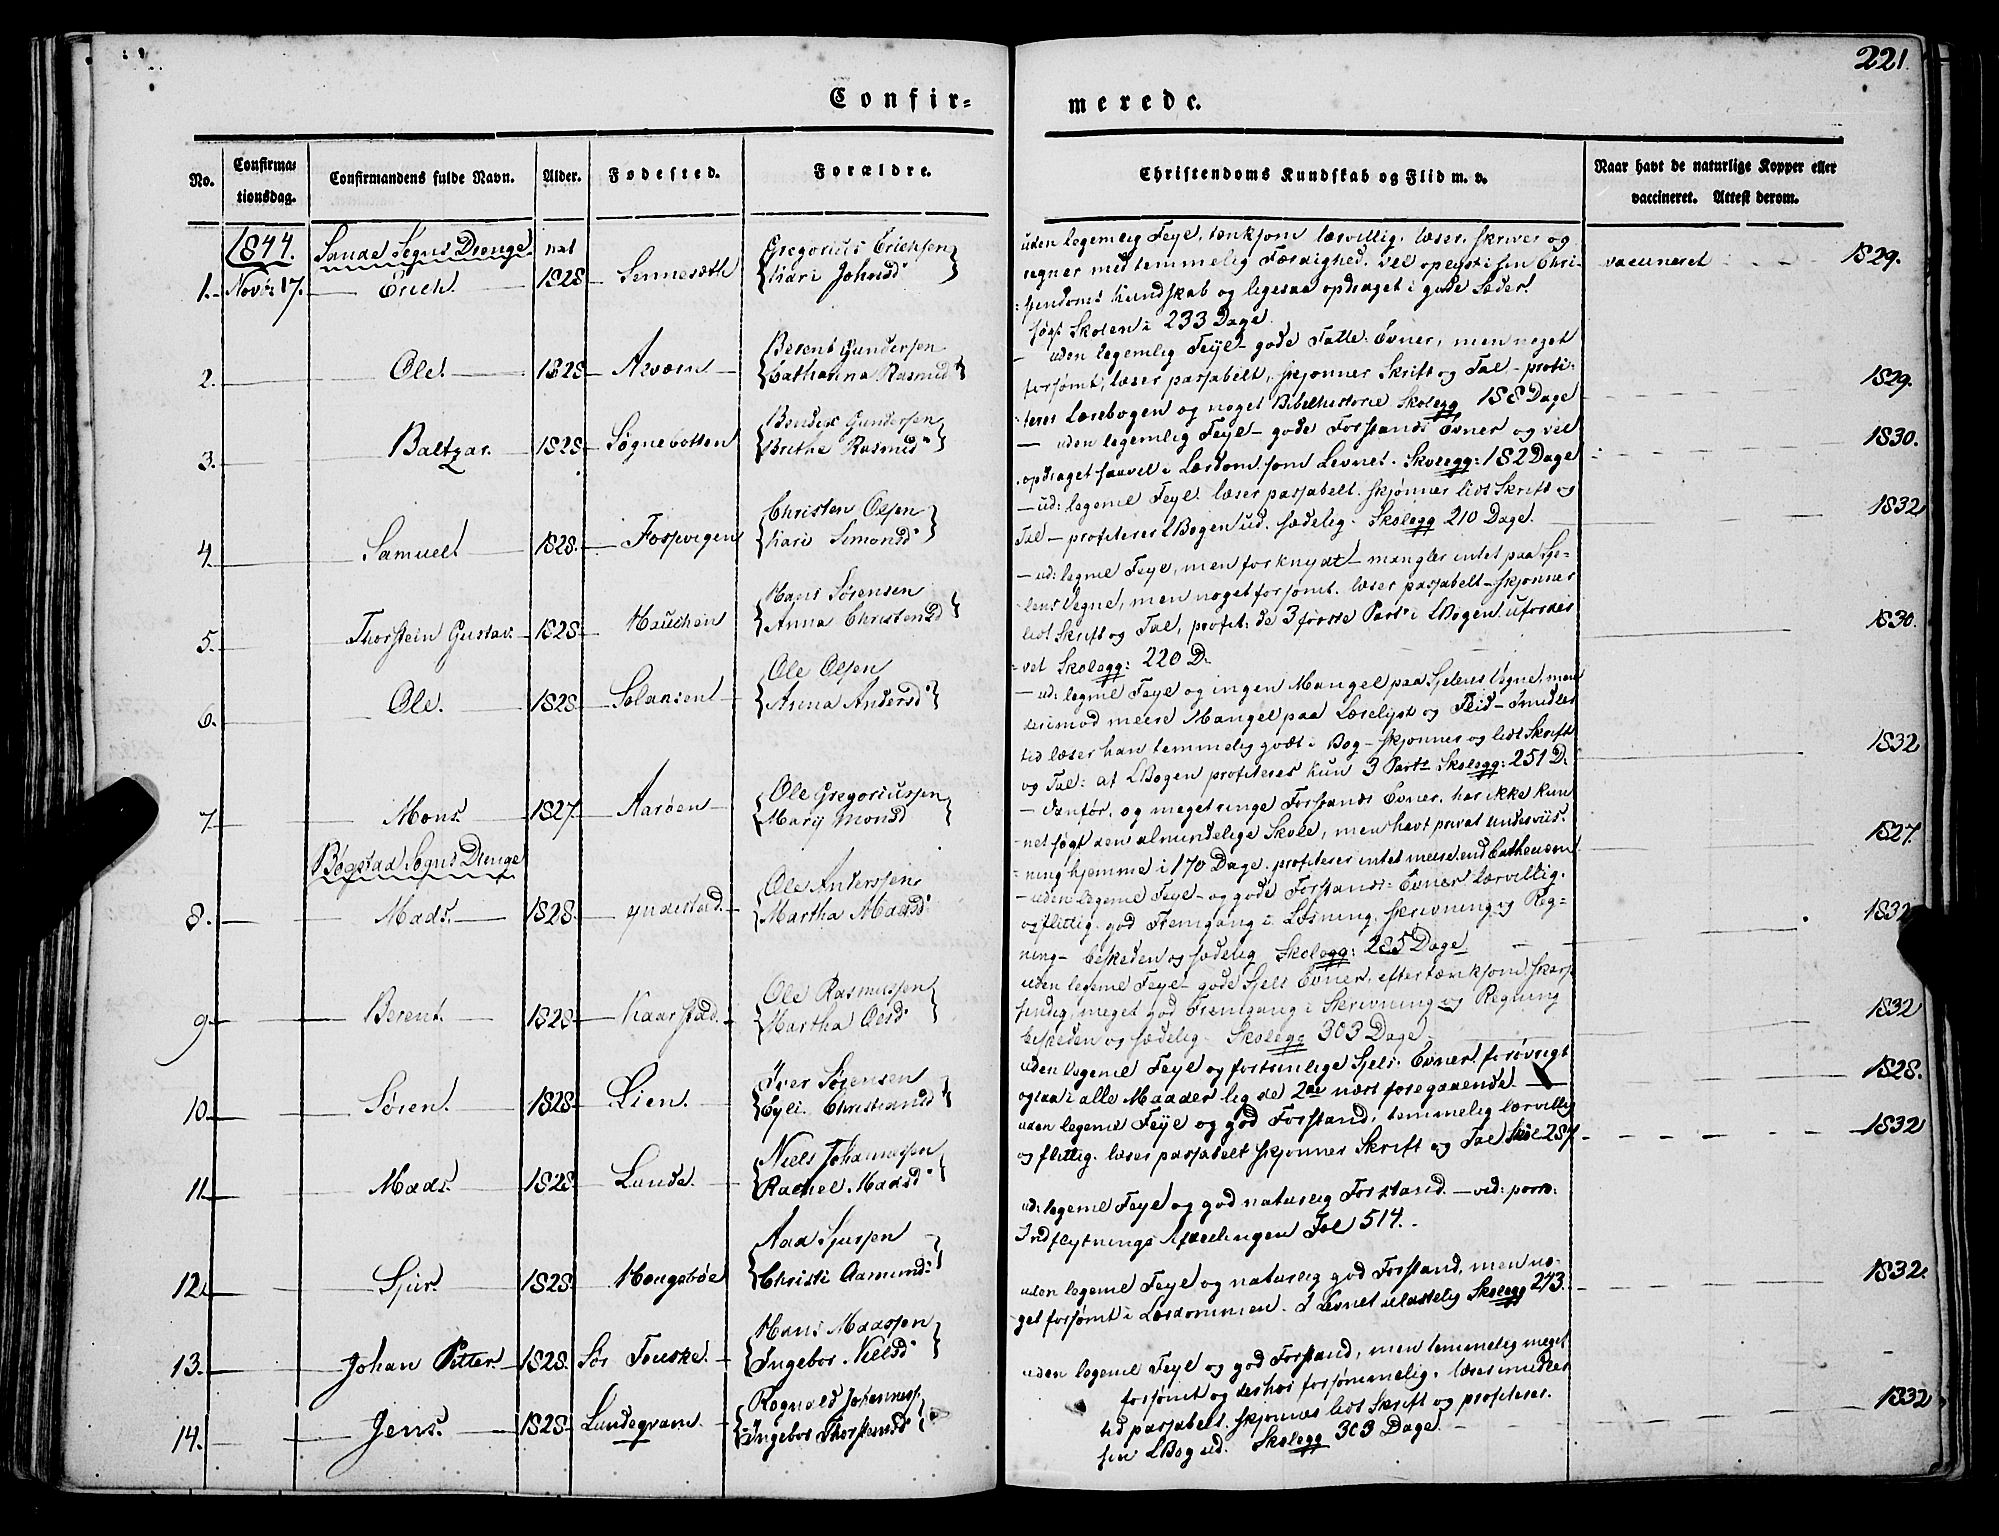 221.
Confir-
merede.
No.
Confirma-
tionsdag.
Confirmandens fulde Navn.
Alder.
Fødested.
Forældre.
Christendoms Kundskab og Flid m. v.
Naar havt de naturlige Kopper eller
vaccineret. Attest derom.
1844. Sande Sogns Drenge nat
1. Novbr 17. Erich. 1828 Senneseth
Gregorius Erichsen
Kari Johnsd
uden legemlig Feyl, tænksom lærvillig, læser, skriver og
regner med temmelig Færdighed. vel oplyst i sin Chri-
stendoms Kundskab og ligesaa opdraget i gode Sæder.
søgt Skolen i 233 Dage
vaccineret 1829.
2. Ole. 1828 Arvoen
Berent Gundersen
Catharina Rasmusd
- uden legemlig Feyl - gode Fatte Evner, men noget
forsømt; læser passabelt, skjønner Skrift og Tal - profi-
terer Lærebogen og noget Bibelhistorie Skolegg 188 Dage
1829.
3. Baltzar. 1828 Søgnebotten
Bendix Gundersen
Brithe Rasmusd
- uden legemlig Feyl - gode Forstands Evner og vel
opdraget saavel i Lærdom som Levnet. Skolegg: 182 Dage
1830.
4. Samuel 1828. Fossevigen
Christen Olsen
Kari Simonsd
- ud: legeml Feyl. læser passabelt. skjønner lidt Skrift og
Tal - profiterer LBogen ud. sædelig. Skolegg 210 Dage.
1832
5. Thorstein Gustav. 1828.
Hans Sørensen
Anna Christensd
- ud: legml Feyl, men forknydt - mangler intet paa Sje-
lens Vegne, men noget forsømt. læser passabelt - skjønner
lidt Skrift og Tal, profit: de 3 første Part i LBogen. ufordær
vet Skolegg: 220 D.
1830.
6. Ole. 1828. Solansen
Ole Olsen
Anna Andersd
- ud: legml Feyl og ingen Mangel paa Sjelens Vegne, men
derimod mere Mangel paa Lærelyst og Flid - Imidler
tid læser han temmelig godt i Bog - skjønner og lidt Skrift
og Tal: af LBogen profiteres kun 3 Part Skolegg: 251 D.
1832
7. Mons. 1827. Aarøen
Ole Gregoriussen
Mary Monsd
- Vanfør, og meget ringe Forstands Evner. har ikke kun
net søgt den almindelige Skole, men havt privat underviis-
ning hjemme i 170 Dage. profiterer intet mere end
1827.
Bøgstad Sogns Drenge
8. Mads. 1828. Yndestad.
Ole Anderssen
Martha Madsd
- uden legeml Feyl - og gode Forstands Evner lærvillig.
og flittig. god Fremgang i Læsning, skrivning og Reg-
ning - beskeden og sædelig Skolegg: 285 Dage
1832
9 Berent. 1828. Kaarstad.
Ole Rasmussen
Martha Olsd
uden legeml Feyl - gode Sjels Evner, eftertænksom skarp
sindig, meget god Fremgang i Skrivning og Regning
beskeden og sædelig. Skolegg 303 Dage
1832
10. Søren. 1828. Lien.
Iver Sørensen
Eyli Christiansd
uden legeml Feyl og fortrinlige Sjels Evner. forøvrigt
ogsaa i alle Maader lig de 2de næst foregaaende.
1828.
11. Mads. 1828. Lunde.
Niels Johannessen
Rachel Madsd
uden legeml Feyl og god Forstand, temmelig lærvillig
og flittig. læser passabelt skjønner Skrift og Tal Skol 287.
1832
12. Sjur. 1828. Hougsbøe
Aad Sjursen
Christi Aamunds
ud: legeml Feyl og god naturlig Forstand. - vid:
Indflytnings Afdelingen Fol 514.
1832.
13. Johan Petter 1828. Sør Fouske.
Hans Madssen
Ingebor Nielsd
uden legeml Feyl og naturlig god Forstand, men no-
get forsømt i Lærdommen. I Levnet ulastelig Skolegg 273.
14. Jens. 1828. Lundegram.
Rognald Johanness
Ingebor Thorstensd
uden legeml Feyl og god Forstand, men temmelig meget
forsømt og derhos forsømmelig. læser imidler
tid passabelt. skjønner lidt Skrift og profiterer.
sin LBog ud. Skolegg 303 Dage.
1832